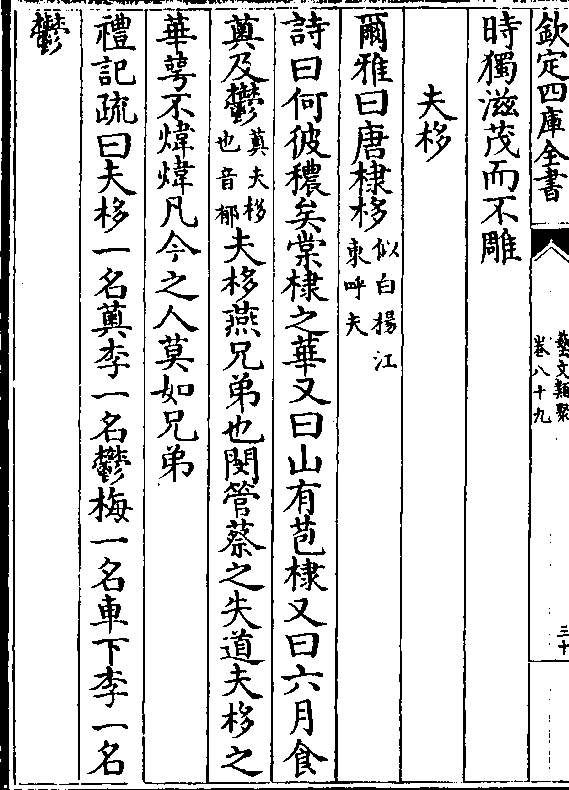 欽定四庫全書
藝文類聚
卷八十九
三十
時獨滋茂而不雕
夫栘
爾雅曰唐棣栘似白楊江東呼夫
詩曰何彼穠矣棠棣之華又曰山有苞棣又曰六月食
薁及鬱薁夫栘也音郁夫栘燕兄弟也閔管蔡之失道夫栘之
華萼不煒煒凡今之人莫如兄弟
禮記疏曰夫栘一名薁李一名鬱梅一名車下李一名
鬱